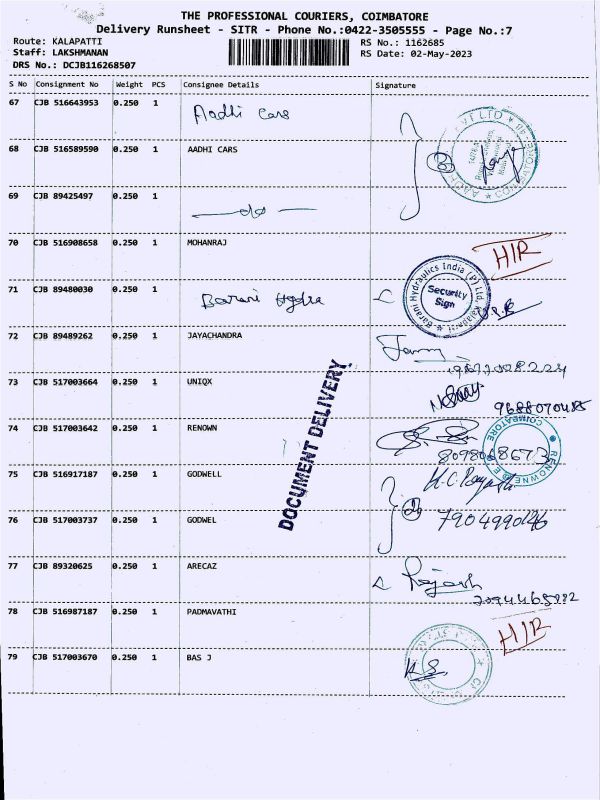 THE PROFESSIONAL COURIERS, COIMBATORE
Delivery Runsheet - SITR - Phone No.:0422-3505555 - Page No.:7
Route: KALAPATTI
RS No.: 1162685
Staff: LAKSHMANAN
RS Date: 02-May-2023
DRS No.: DCJB116268507
S No Consignment No Weight PCS Consignee Details Signature
67 CJB 516643953 0.250 1 Aadhi Cars
68 CJB 516589590 0.250 1 AADHI CARS
69 CJB 89425497 0.250 1
70 CJB 516908658 0.250 1 MOHANRAJ HIR
71 CJB 89480030 0.250 1 Barani Hydra
Barani Hydraulics India (P) Ltd, Kalapatti
Security
Sign
72 CJB 89489262 0.250 1 JAYACHANDRA
73 CJB 517003664 0.250 1 UNIQX
9688070485
74 CJB 517003642 0.250 1 RENOWN
COIMBATORE
75 CJB 516917187 0.250 1 GODWELL
76 CJB 517003737 0.250 1 GODWEL
77 CJB 89320625 0.250 1 ARECAZ Rajesh
78 CJB 516987187 0.250 1 PADMAVATHI HIR
79 CJB 517003670 0.250 1 BAS J
DOCUMENT DELIVERY.